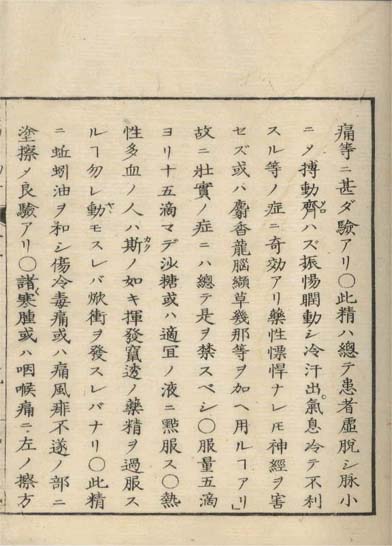 痛等ニ甚ダ驗アリ○此精ハ總テ患者虛脫シ脉小
ニメ搏動齊ハズ振惕瞤動シ冷汗出氣息冷テ不利
スル等ノ症ニ奇効アリ藥性慓悍ナレ𪜈神經ヲ害
セズ或ハ麝香龍腦纈草幾那等ヲ加ヘ用ルヿアリ」
故ニ壯實ノ症ニハ總テ是ヲ禁スベシ○服量五滴
ヨリ十五滴マデ沙糖或ハ適宜ノ液ニ點服ス○熱
性多血ノ人ハ斯ノ如キ揮發竄透ノ藥精ヲ過服ス
ルヿ勿レ動モスレバ焮衝ヲ發スレバナリ○此精
ニ蚯蚓油ヲ和シ傷冷毒痛或ハ痛風痱不遂ノ部ニ
塗擦メ良驗アリ○諸寒腫或ハ咽喉痛ニ左ノ擦方